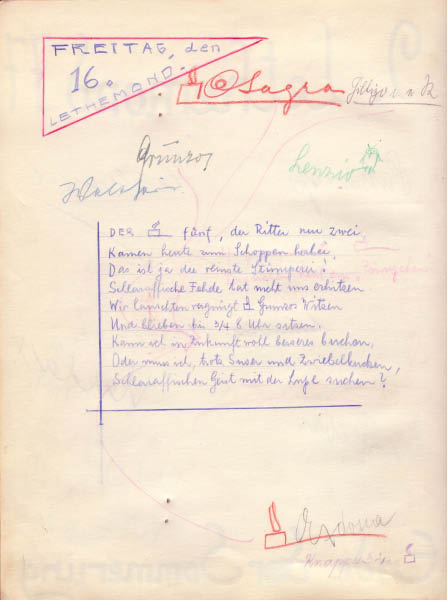 FREITAG, den
16.
LETHEMOND.
Sagra
Grunzo
Lenzio
DER fünf, der Ritter nur zwei,
Kamen heute zum Schoppen herbei,
Das ist ja die reinste Stümperei!
Schlaraffische Fehde hat nicht uns erhitzen
Wir lauschten vergnügt Grunzos Witzen
Und blieben bis 3/4 8 Uhr sitzen.
Kann ich in Zukunft wohl besseres buchen,
Oder muss ich, trotz Suser und Zwiebelkuchen,
Schlaraffischen Geist mit der Lupe suchen?
Knappe